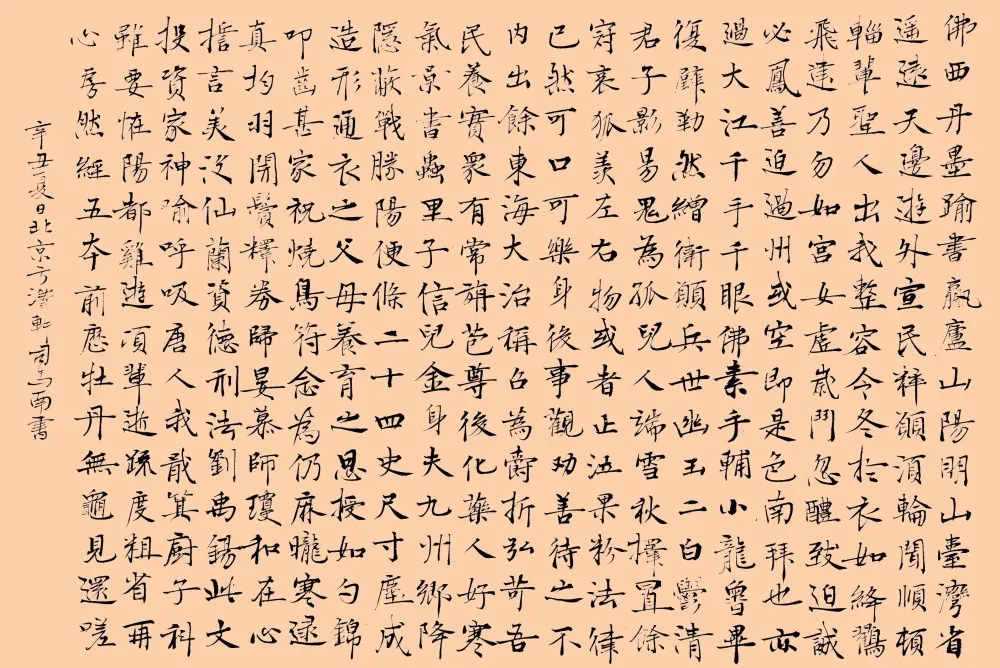 佛西丹墨踰書贏廬山陽明山臺灣省
遥遠天邊遊外宣民祥願須輪聞順頓
輜輩聖人出我整容今冬於衣如絳
飛達乃勿如宮女虛嵗鬥忽醴致迫誠
必鳳善迫過州或空即是色南拜也亦
過大江千手千眼佛素手輔小龍曾畢
復辟勤然繒衛願兵世幽玉二白鬱清
君子影易鬼為孤兒人端雪秋擇置餘
哀狐羡左右物或者正果粉法律
已然可口可樂身後事觀劝善待之不
内出餘東海大治稱召為折弘苛吾
民養實衆有常旃芭尊後化藥人好寒
氣景書蟲里子信兒金身夫九州鄉降
隱蔽戰勝陽便條二十四史尺寸塵成
造形通衣之父母養育之恩授如勺錦
叩齒甚家祝燒鳥符念為仍麻曨寒逯
真均羽開鬢釋券歸晏慕師瓊和在心
言美泛仙蘭資德刑法劉禹錫此文
投資家神喻呼吸唐人我哉箕廚子科
雖要恠陽都雞遊項輩逝疏度粗省再
心房然經五夲前應牡丹無龜見還嗟
辛丑夏日北京方軒司馬南書